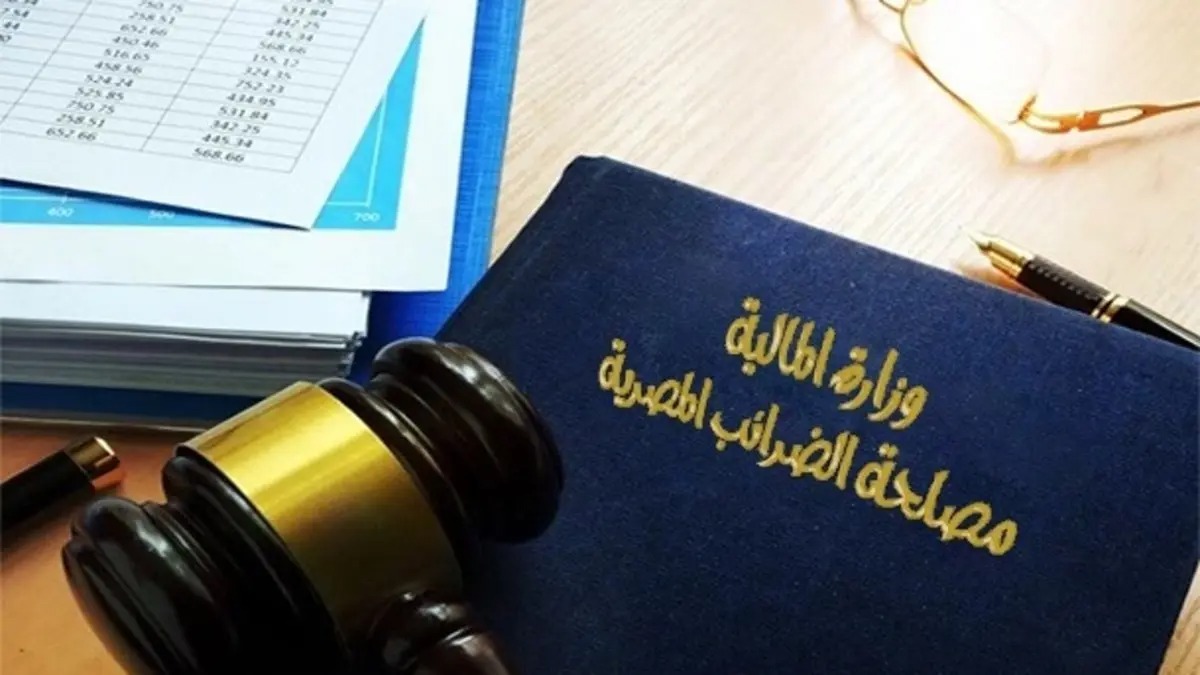 750.75 531.84
652.66 342.25
450.46 445.34
516.65 568.66
458.56 155.12
524.24 324.35
525.85 752.23
750.75 434.95
258.51 531.84
652.66 342.25
445.34
568.66
400 500 700
وزارة المالية
مصلحة الضرائب المصرية